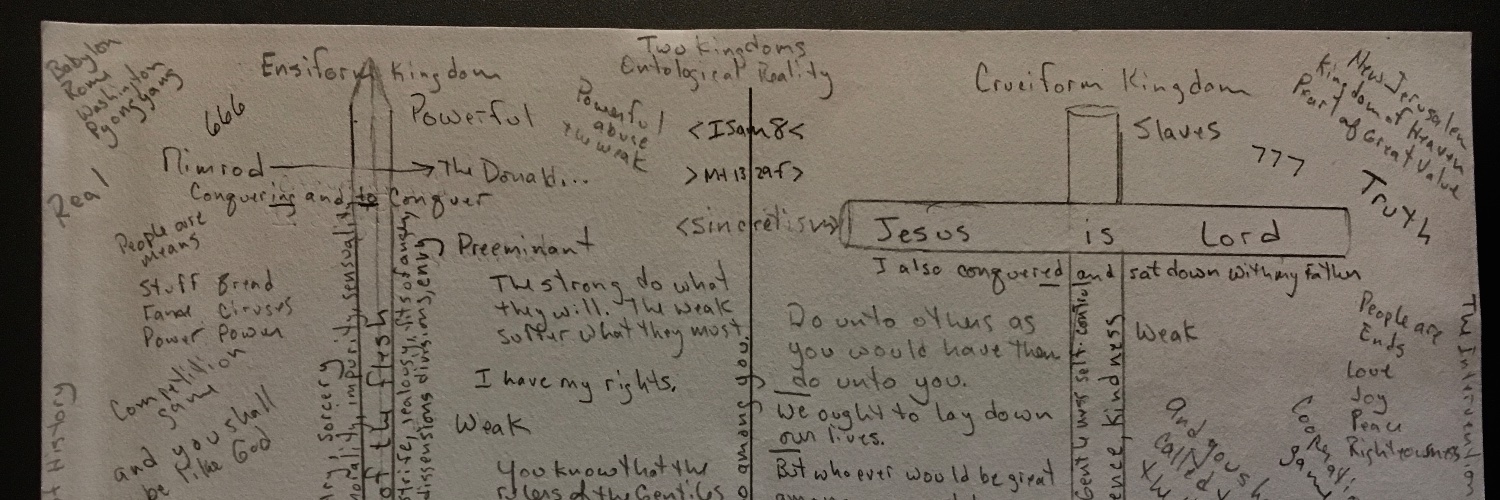 Two Kingdoms
Ontological Reality
Babylon
Rome
Washington
Pyongyang
666
Real
Ensiform Kingdom
Powerful
Powerful
abuse
the weak
Nimrod
The Donald...
Conquering and to Conquer
People are
Means
Stuff Bread
Fame Circuses
Power Power
Competition
Game
and you shall
be like God
t History
sorcery
impurity, sensuality,
of the flesh
strife, jealousy, fits of anger,
dissensions divisions, envy
Preeminant
The strong do what
they will. The weak
suffer what they must.
I have my rights.
Weak
You know that the
rulers of the Gentiles
<I Sam 8<
>Mt 13 29f>
<sincretism>
o among you.
Cruciform Kingdom
Slaves
777
New Jerusalem
Kingdom of Heaven
Pearl of Great Value
Truth
Jesus is Lord
I also conquered and sat down with my Father
Do unto others as
you would have them
do unto you.
We ought to lay down
our lives.
But whoever would be great
Gentleness self-control
ence, Kindness
Weak
People are
Ends
Love
Joy
Peace
Righteousness
And you sh
called
the
Cooperati
Game
The Intervention